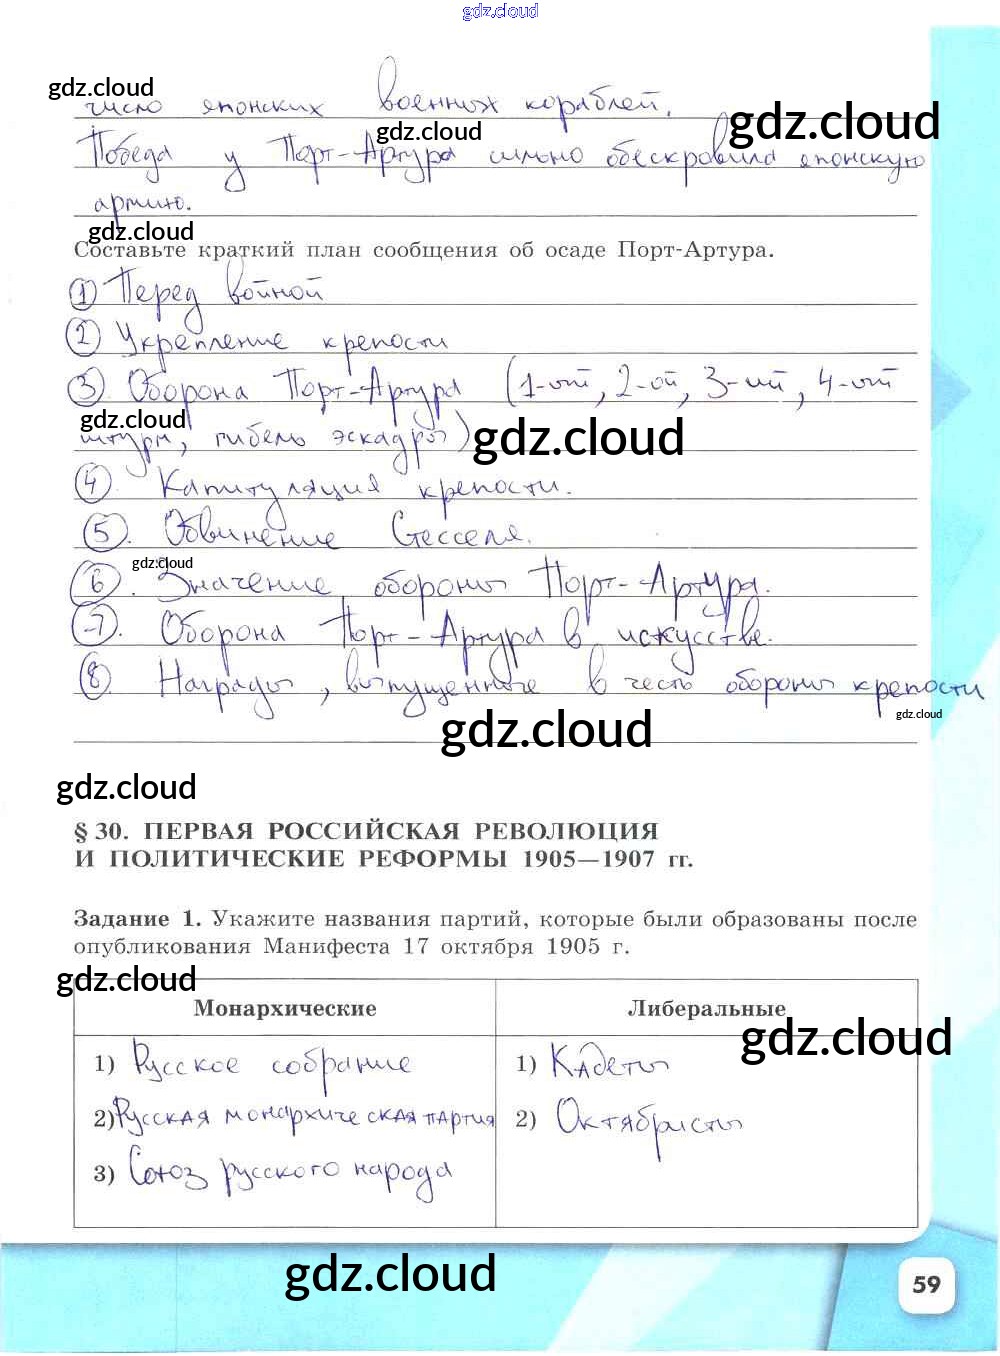 gdz.cloud
gdz.cloud
число японских военных кораблей.
gdz.cloud
gdz.cloud
Победа у Порт-Артура сильно обескровила японскую
армию.
gdz.cloud
Составьте краткий план сообщения об осаде Порт-Артура.
1) Перед войной
2) Укрепление крепости
3). Оборона Порт-Артура (1-ый, 2-ой, 3-ий, 4-ый
gdz.cloud
gdz.cloud
штурм, гибель эскадры)
4). Капитуляция крепости.
5). Обвинение Стесселя.
gdz.cloud
6). Значение обороны Порт-Артура.
7). Оборона Порт-Артура в искусстве.
8). Награды, выпущенные в честь обороны крепости
gdz.cloud
gdz.cloud
gdz.cloud
§ 30. ПЕРВАЯ РОССИЙСКАЯ РЕВОЛЮЦИЯ
И ПОЛИТИЧЕСКИЕ РЕФОРМЫ 1905—1907 гг.
Задание 1. Укажите названия партий, которые были образованы после
опубликования Манифеста 17 октября 1905 г.
gdz.cloud
Монархические Либеральные
gdz.cloud
1) Русское собрание 1) Кадеты
2) Русская монархическая партия 2) Октябристы
3) Союз русского народа
gdz.cloud
59